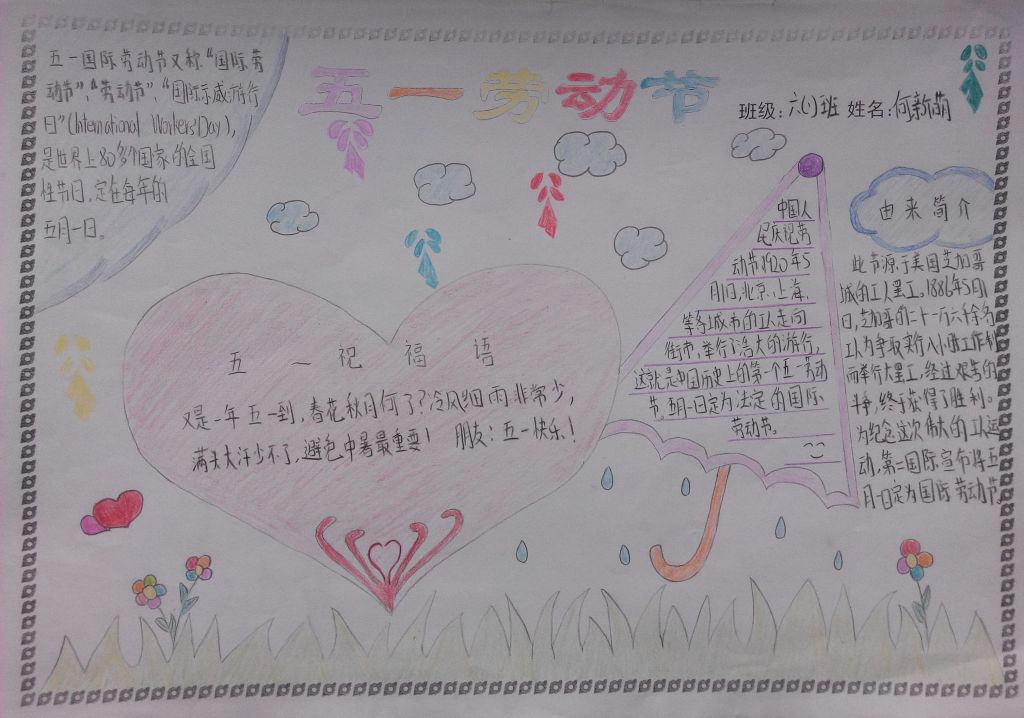 五一劳动节
班级:六(1)班 姓名:何新萌
五一国际劳动节又称“国际劳
动节”、“劳动节”、“国际示威游行
日”(International Workers'Day),
是世界上80多个国家的全国
性节日,定在每年的
五月一日。
五一祝福语
又是一年五一到,春花秋月何了?冷风细雨非常少,
满头大汗少不了,避免中暑最重要! 朋友:五一快乐!
中国人
民庆祝劳
动节1920年5
月1日,北京、上海、
等城市的工人走向
街市,举行了浩大的游行,
这就是中国历史上的第一个五一劳动
节,五月一日定为法定的国际
劳动节。
由来简介
此节源于美国芝加哥
城的工人罢工。1886年5月1
日,芝加哥的二十一万六千余名
工人为争取实行八小时工作制
而举行大罢工,经过艰苦的
斗争,终于获得了胜利。
为纪念这次伟大的工人运
动,第二国际宣布将五
月一日定为国际劳动节。